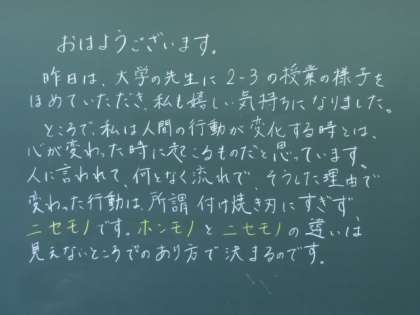 おはようございます。
昨日は、大学の先生に2-3の授業の様子を
ほめていただき、私も嬉しい気持ちになりました。
ところで、私は人間の行動が変化する時とは、
心が変わった時に起こるものだと思っています。
人に言われて、何となく流れで、そうした理由で
変わった行動は、所謂付け焼き刃にすぎず
ニセモノです。ホンモノとニセモノの違いは
見えないところでのあり方で決まるのです。